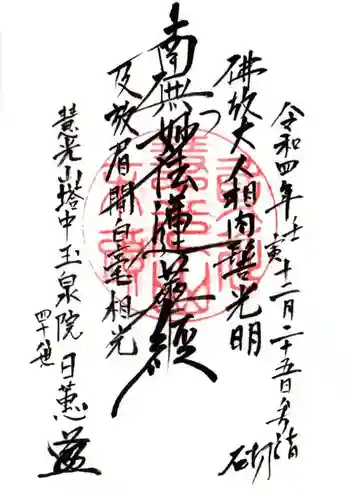 令和四年壬寅十二月二十五日参詣
砌
佛放大人相肉髻光明
南無妙法蓮華経
及放眉間白毫相光
慧光山塔中玉泉院日薫
四十世